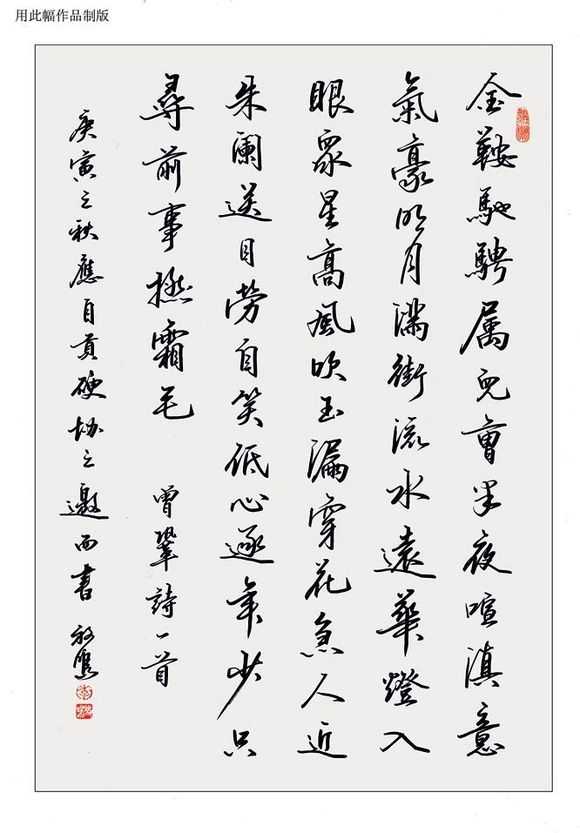 用此幅作品制版
金鞍馳騁屬兒曹半夜喧滇意
氣豪明月滿街流水遠華燈入
眼眾星高風吹玉漏穿花急人近
朱闌送目勞自笑低心逐年少只
尋前事撚霜毛 曾鞏詩一首
庚寅之秋應自貢硬協之邀而書